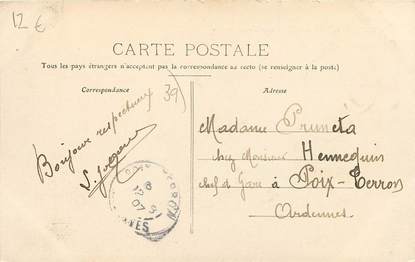 12 €
CARTE POSTALE
Tous les pays étrangers n'acceptent pas la correspondance au recto (se renseigner à la poste)
Correspondance
Adresse
39
Bonjour respectueux
Madame Pruneta
chez Monsieur Hennequin
chef de Gare à Poix-Terron
Ardennes